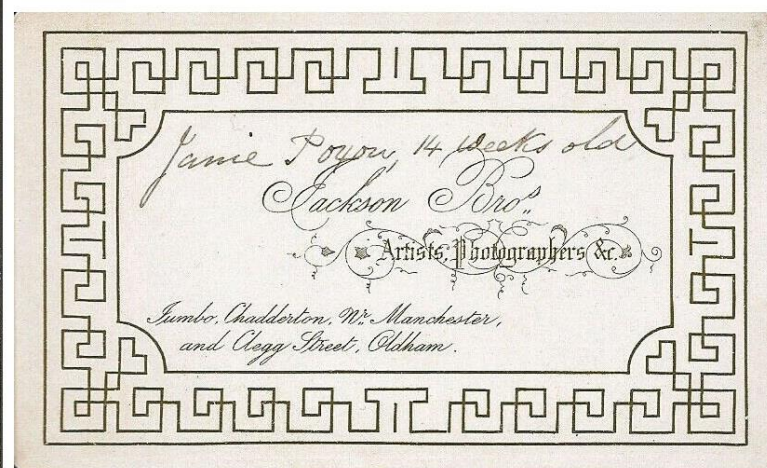 Janie Poyou, 14 Weeks old
Jackson Bros
Artists, Photographers &c.
Jumbo, Chadderton, Nr. Manchester,
and Clegg Street, Oldham.